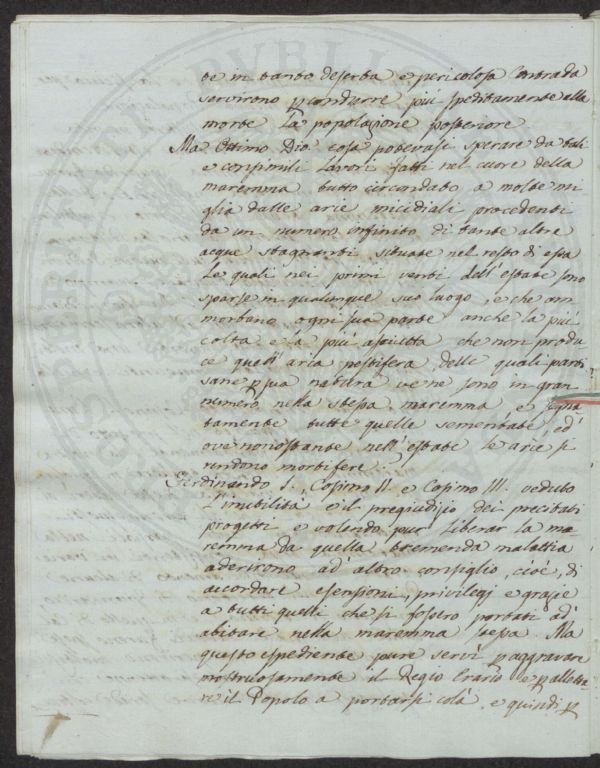 te in tanto deserta e pericolosa Contrada
servirono p condurre più speditamente alla
morte la popolazione posteriore
Ma Ottimo Dio cosa potevasi sperare da tali
e consimili lavori fatti nel cuore della
maremma tutto circondato a molte mi
glia dalle arie micidiali procedenti
da un numero infinito di tante altre
acque stagnanti situate nel resto di essa
le quali nei primi venti dell'estate sono
sparse in qualunque suo luogo, e che am
morbano ogni sua parte anche la più
colta e la più asciutta che non produ
ce quell'aria pestifera, delle quali parti
sane p sua natura ve ne sono in gran
numero nella stessa maremma e segna
tamente tutte quelle sementate, ed'
ove nonostante nell'estate le arie si
rendono morbifere.
Ferdinando I. Cosimo II. e Cosimo III. veduto
l'inutilità e il pregiudizio dei precitati
progetti e volendo pur liberar la ma
remma da quella tremenda malattia
aderirono ad'altro consiglio, cioè, di
accordare esensioni, privilegj e grazie
a tutti quelli che si fossero portati ad'
abitare nella maremma stessa. Ma
questo espediente pure servì p aggravare
mostruosamente il Regio Erario e p alletta
re il Popolo a portarsi colà, e quindi p